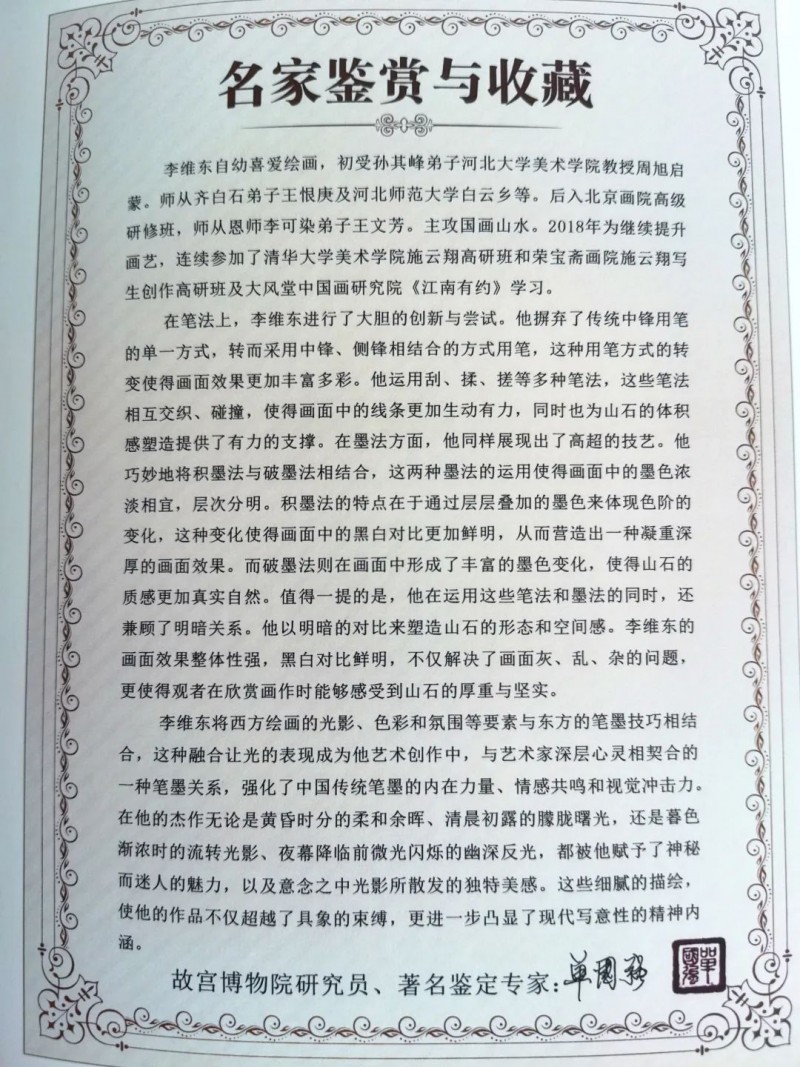 名家鉴赏与收藏
李维东自幼喜爱绘画，初受孙其峰弟子河北大学美术学院教授周旭启
蒙。师从齐白石弟子王恨庚及河北师范大学白云乡等。后入北京画院高级
研修班，师从恩师李可染弟子王文芳。主攻国画山水。2018年为继续提升
画艺，连续参加了清华大学美术学院施云翔高研班和荣宝斋画院施云翔写
生创作高研班及大风堂中国画研究院《江南有约》学习。
在笔法上，李维东进行了大胆的创新与尝试。他摒弃了传统中锋用笔
的单一方式，转而采用中锋、侧锋相结合的方式用笔，这种用笔方式的转
变使得画面效果更加丰富多彩。他运用刮、揉、搓等多种笔法，这些笔法
相互交织、碰撞，使得画面中的线条更加生动有力，同时也为山石的体积
感塑造提供了有力的支撑。在墨法方面，他同样展现出了高超的技艺。他
巧妙地将积墨法与破墨法相结合，这两种墨法的运用使得画面中的墨色浓
淡相宜，层次分明。积墨法的特点在于通过层层叠加的墨色来体现色阶的
变化，这种变化使得画面中的黑白对比更加鲜明，从而营造出一种凝重深
厚的画面效果。而破墨法则在画面中形成了丰富的墨色变化，使得山石的
质感更加真实自然。值得一提的是，他在运用这些笔法和墨法的同时，还
兼顾了明暗关系。他以明暗的对比来塑造山石的形态和空间感。李维东的
画面效果整体性强，黑白对比鲜明，不仅解决了画面灰、乱、杂的问题，
更使得观者在欣赏画作时能够感受到山石的厚重与坚实。
李维东将西方绘画的光影、色彩和氛围等要素与东方的笔墨技巧相结
合，这种融合让光的表现成为他艺术创作中，与艺术家深层心灵相契合的
一种笔墨关系，强化了中国传统笔墨的内在力量、情感共鸣和视觉冲击力。
在他的杰作无论是黄昏时分的柔和余晖、清晨初露的朦胧曙光，还是暮色
渐浓时的流转光影、夜幕降临前微光闪烁的幽深反光，都被他赋予了神秘
而迷人的魅力，以及意念之中光影所散发的独特美感。这些细腻的描绘，
使他的作品不仅超越了具象的束缚，更进一步凸显了现代写意性的精神内
涵。
故宫博物院研究员、著名鉴定专家：单国强
單國强